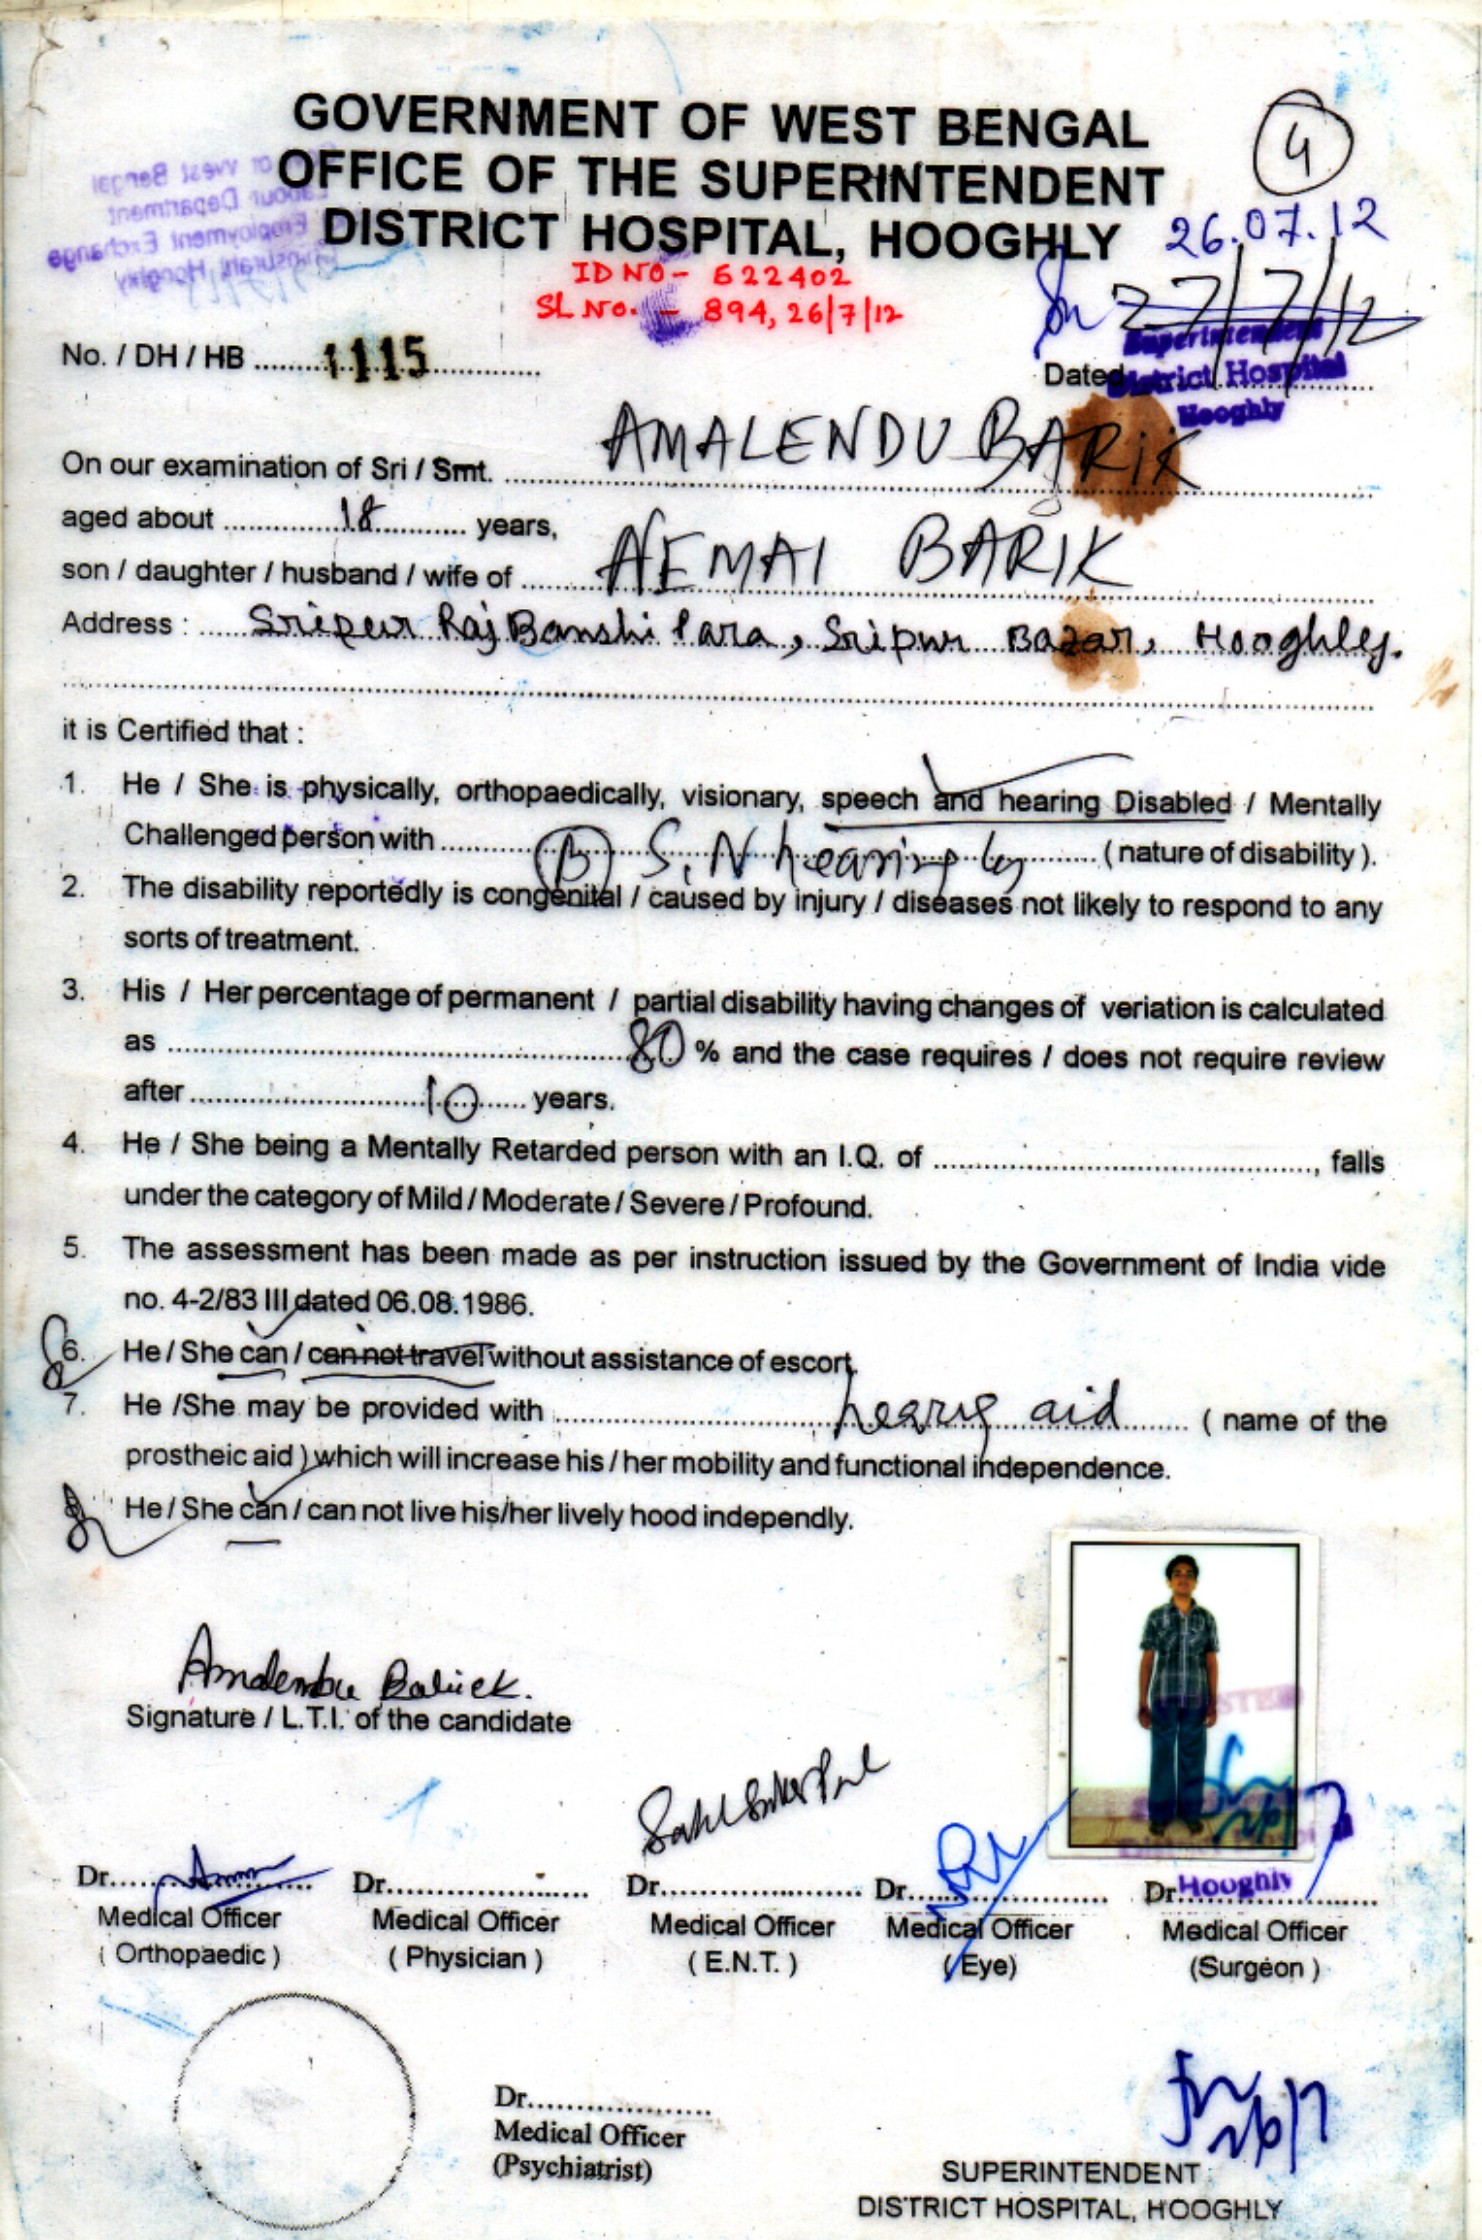 GOVERNMENT OF WEST BENGAL
OFFICE OF THE SUPERINTENDENT
DISTRICT HOSPITAL, HOOGHLY
4
of West Bengal
Labour Department
Employment Exchange
Hooghly
26.07.12
ID NO - 622402
SL NO. - 894, 26/7/12
27/7/12
Superintendent
District Hospital
Hooghly
No. / DH / HB ........1115................
Dated
On our examination of Sri / Smt. AMALENDU BARIK
aged about 18 years,
son / daughter / husband / wife of NEMAI BARIK
Address : Sripur Raj Banshi Para, Sripur Bazar, Hooghly.
it is Certified that :
1. He / She is physically, orthopaedically, visionary, speech and hearing Disabled / Mentally
Challenged person with (B) S. N hearing ( nature of disability ).
2. The disability reportedly is congenital / caused by injury / diseases not likely to respond to any
sorts of treatment.
3. His / Her percentage of permanent / partial disability having changes of veriation is calculated
as 80 % and the case requires / does not require review
after 10 years.
4. He / She being a Mentally Retarded person with an I.Q. of ........................, falls
under the category of Mild / Moderate / Severe / Profound.
5. The assessment has been made as per instruction issued by the Government of India vide
no. 4-2/83 III dated 06.08.1986.
6. He / She can / can not travel without assistance of escort.
7. He /She may be provided with hearing aid ( name of the
prostheic aid ) which will increase his / her mobility and functional independence.
He / She can / can not live his/her lively hood independly.
Signature / L.T.I. of the candidate
Dr.................... Dr.................... Dr.................... Dr.................... Dr Hooghly
Medical Officer Medical Officer Medical Officer Medical Officer Medical Officer
( Orthopaedic ) ( Physician ) ( E.N.T. ) ( Eye) (Surgeon )
Dr....................
Medical Officer
(Psychiatrist)
SUPERINTENDENT
DISTRICT HOSPITAL, HOOGHLY